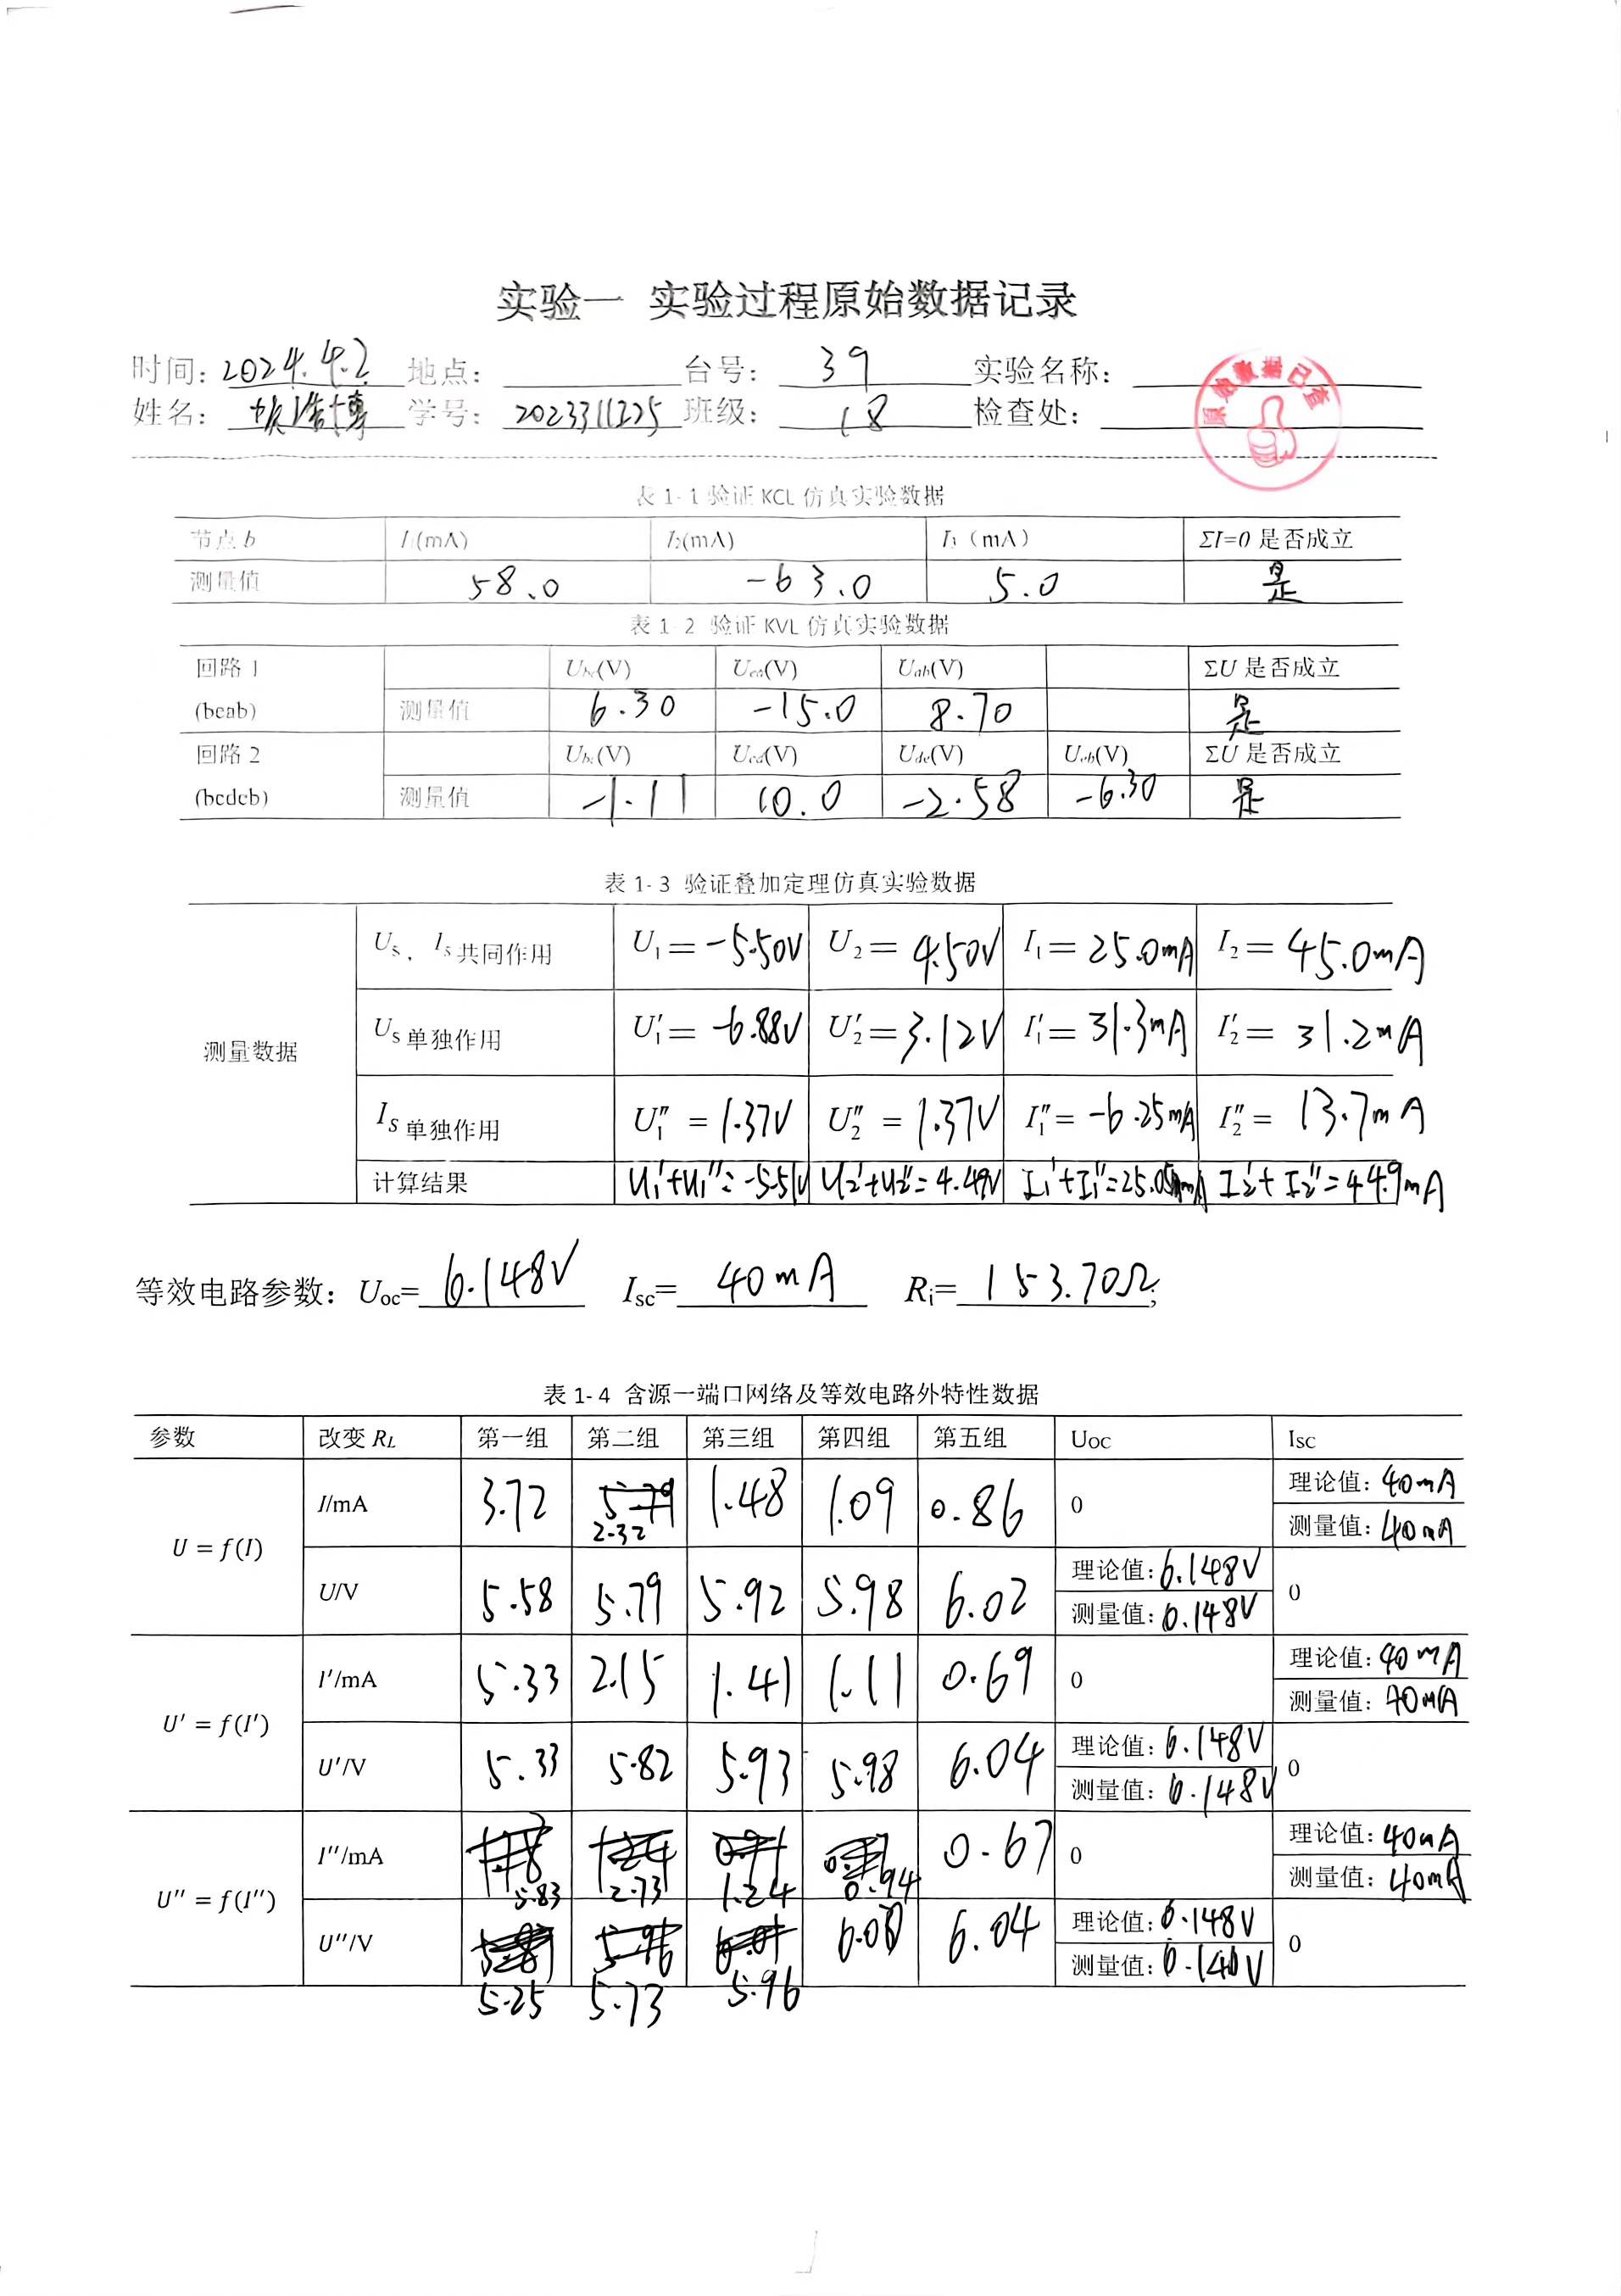 实验一 实验过程原始数据记录
时间: 2024.4.2 地点: 台号: 39 实验名称:
姓名: 浩博 学号: 2023311225 班级: 18 检查处:
原始数据已查
表 1-1 验证 KCL 仿真实验数据
节点 b I₁(mA) I₂(mA) I₃（mA） ΣI=0 是否成立
测量值 58.0 -63.0 5.0 是
表 1-2 验证 KVL 仿真实验数据
回路 1 Ube(V) Uea(V) Uab(V) ΣU 是否成立
(beab) 测量值 6.30 -15.0 8.70 是
回路 2 Ubc(V) Ucd(V) Ude(V) Ueb(V) ΣU 是否成立
(bcdeb) 测量值 -1.11 10.0 -2.58 -6.30 是
表 1-3 验证叠加定理仿真实验数据
测量数据
US、IS 共同作用 U₁ = -5.50V U₂ = 4.50V I₁ = 25.0mA I₂ = 45.0mA
US 单独作用 U₁′ = -6.88V U₂′ = 3.12V I₁′ = 31.3mA I₂′ = 31.2mA
IS 单独作用 U₁″ = 1.37V U₂″ = 1.37V I₁″ = -6.25mA I₂″ = 13.7mA
计算结果 U₁′+U₁″=-5.51V U₂′+U₂″=4.49V I₁′+I₁″=25.05mA I₂′+I₂″=44.9mA
等效电路参数: Uoc= 6.148V Isc= 40mA Ri= 153.70Ω;
表 1-4 含源一端口网络及等效电路外特性数据
参数 改变 RL 第一组 第二组 第三组 第四组 第五组 UOC ISC
U = f(I)
I/mA 3.72 2.32 1.48 1.09 0.86 0 理论值: 40mA
测量值: 40mA
U/V 5.58 5.79 5.92 5.98 6.02 理论值: 6.148V 0
测量值: 6.148V
U′ = f(I′)
I′/mA 5.33 2.15 1.41 1.11 0.69 0 理论值: 40mA
测量值: 40mA
U′/V 5.33 5.82 5.93 5.98 6.04 理论值: 6.148V 0
测量值: 6.148V
U″ = f(I″)
I″/mA 5.83 2.73 1.24 0.94 0.67 0 理论值: 40mA
测量值: 40mA
U″/V 6.00 6.04 理论值: 6.148V 0
测量值: 6.140V
5.25 5.73 5.96